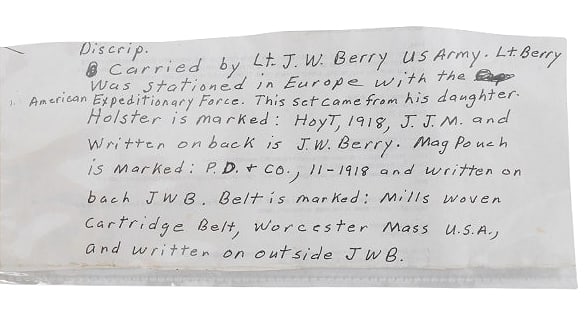 Discrip.
Carried by Lt. J. W. Berry US Army. Lt. Berry
Was stationed in Europe with the
American Expeditionary Force. This set came from his daughter.
Holster is marked: HoyT, 1918, J. J. M. and
Written on back is J.W. Berry. Mag Pouch
is Marked: P. D. + CO., 11-1918 and written on
bach JWB. Belt is marked: Mills woven
Cartridge Belt, Worcester Mass U.S.A.,
and written on outside JWB.